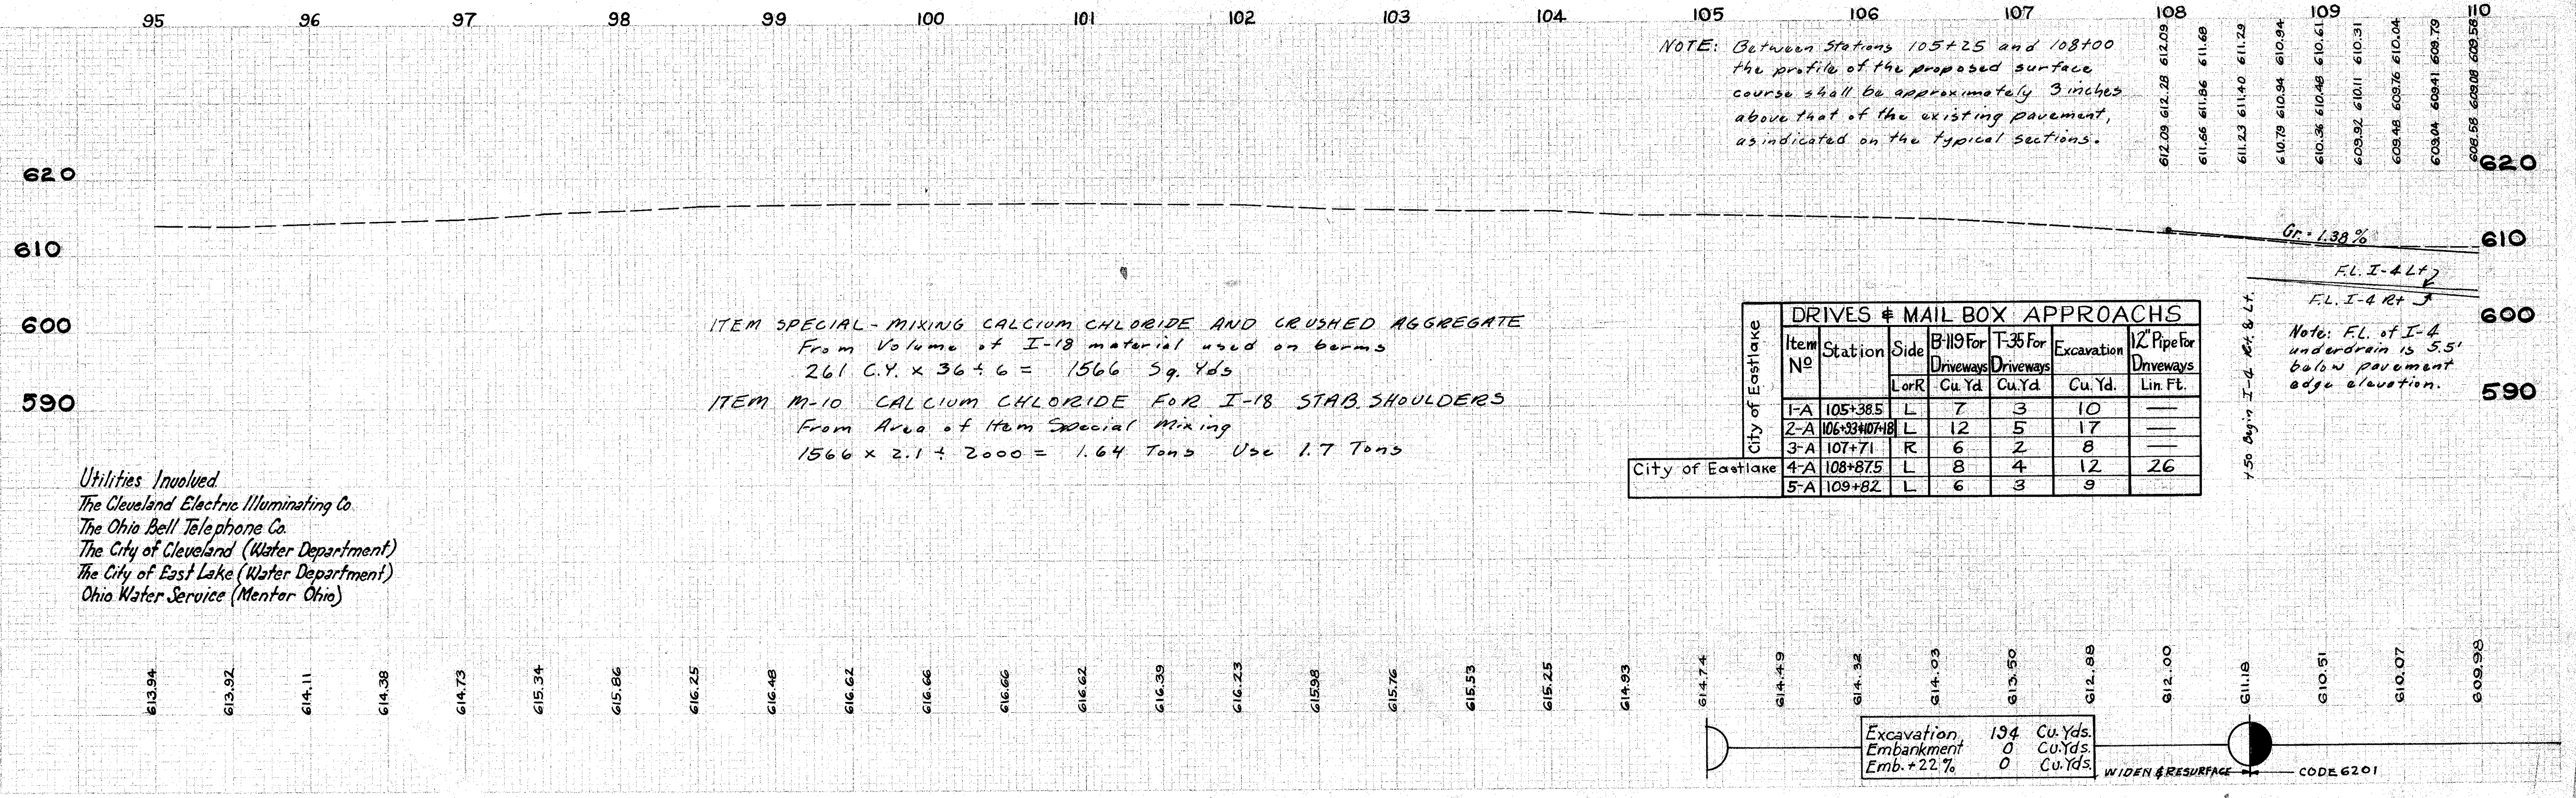 95 96 97 98 99 100 101 102 103 104 105 106 107 108 109 110
NOTE: Between Stations 105+25 and 108+00
the profile of the proposed surface
course shall be approximately 3 inches
above that of the existing pavement,
as indicated on the typical sections.
612.09 612.28 612.09
611.66 611.86 611.68
611.23 611.40 611.29
610.79 610.94 610.94
610.36 610.48 610.61
609.92 610.11 610.31
609.48 609.76 610.04
609.04 609.41 609.79
608.58 609.08 609.58
620 620
610 610
600 600
590 590
Gr. - 1.38%
F.L. I-4 Lt
F.L. I-4 Rt
+50 Begin I-4 Rt. & Lt.
Note: F.L. of I-4
underdrain is 5.5'
below pavement
edge elevation.
ITEM SPECIAL - MIXING CALCIUM CHLORIDE AND CRUSHED AGGREGATE
From Volume of I-18 material used on berms
261 C.Y. x 36 ÷ 6 = 1566 Sq. Yds
ITEM M-10 CALCIUM CHLORIDE FOR I-18 STAB. SHOULDERS
From Area of Item Special Mixing
1566 x 2.1 ÷ 2000 = 1.64 Tons Use 1.7 Tons
DRIVES & MAIL BOX APPROACHS
Item Nº Station Side B-119 For Driveways T-35 For Driveways Excavation 12" Pipe For Driveways
L or R Cu. Yd Cu. Yd. Cu. Yd. Lin. Ft.
City of Eastlake
1-A 105+38.5 L 7 3 10 —
2-A 106+93+107+18 L 12 5 17 —
3-A 107+71 R 6 2 8 —
City of Eastlake 4-A 108+87.5 L 8 4 12 26
5-A 109+82 L 6 3 9
Utilities Involved
The Cleveland Electric Illuminating Co.
The Ohio Bell Telephone Co.
The City of Cleveland (Water Department)
The City of East Lake (Water Department)
Ohio Water Service (Mentor Ohio)
613.94 613.92 614.11 614.38 614.73 615.34 615.86 616.25 616.48 616.62 616.66 616.66 616.62 616.39 616.23 615.98 615.76 615.53 615.25 614.93 614.74 614.49 614.32 614.03 613.50 612.88 612.00 611.18 610.51 610.07 609.98
Excavation 194 Cu. Yds.
Embankment 0 Cu. Yds.
Emb. + 22% 0 Cu. Yds.
WIDEN & RESURFACE CODE 6201